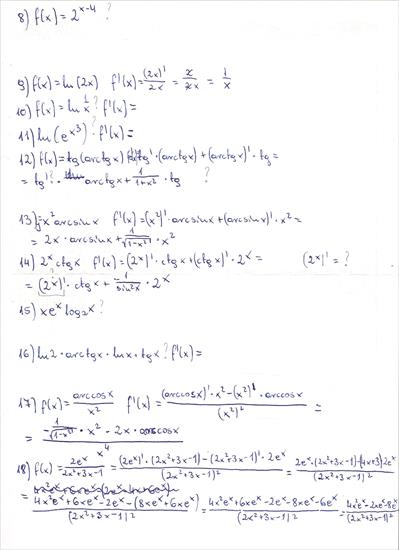 8) f(x) = 2^{x-4} ?
9) f(x) = ln(2x) f'(x) = (2x)'/2x = 2/2x = 1/x
10) f(x) = ln 1/x ? f'(x) =
11) ln(e^{x^3}) ? f'(x) =
12) f(x) = tg(arctgx) tg'·(arctgx) + (arctgx)'·tg =
= tg' ? · arctgx + 1/(1+x²) · tg ?
13) x² arcsinx f'(x) = (x²)'·arcsinx + (arcsinx)'·x² =
= 2x · arcsinx + 1/√(1-x²) · x²
14) 2^x ctgx f'(x) = (2^x)'·ctgx + (ctgx)'·2^x = (2^x)' = ?
= (2^x)'·ctgx + -1/sin²x · 2^x
15) xe^x log2x ?
16) ln2 · arctgx · lnx · tgx ? f'(x) =
17) f(x) = arccosx/x² f'(x) = ((arccosx)'·x² - (x²)'·arccosx)/(x²)² =
= (-1/√(1-x²) · x² - 2x · arccosx)/x⁴
18) f(x) = 2e^x/(2x²+3x-1) = ((2e^x)'·(2x²+3x-1) - (2x²+3x-1)'·2e^x)/(2x²+3x-1)² = (2e^x·(2x²+3x-1) - (4x+3)·2e^x)/(2x²+3x-1)²
= (4x²e^x+6xe^x-2e^x-(8xe^x+6e^x))/(2x²+3x-1)² = (4x²e^x+6xe^x-2e^x-8xe^x-6e^x)/(2x²+3x-1)² = (4x²e^x-2xe^x-8e^x)/(2x²+3x-1)²